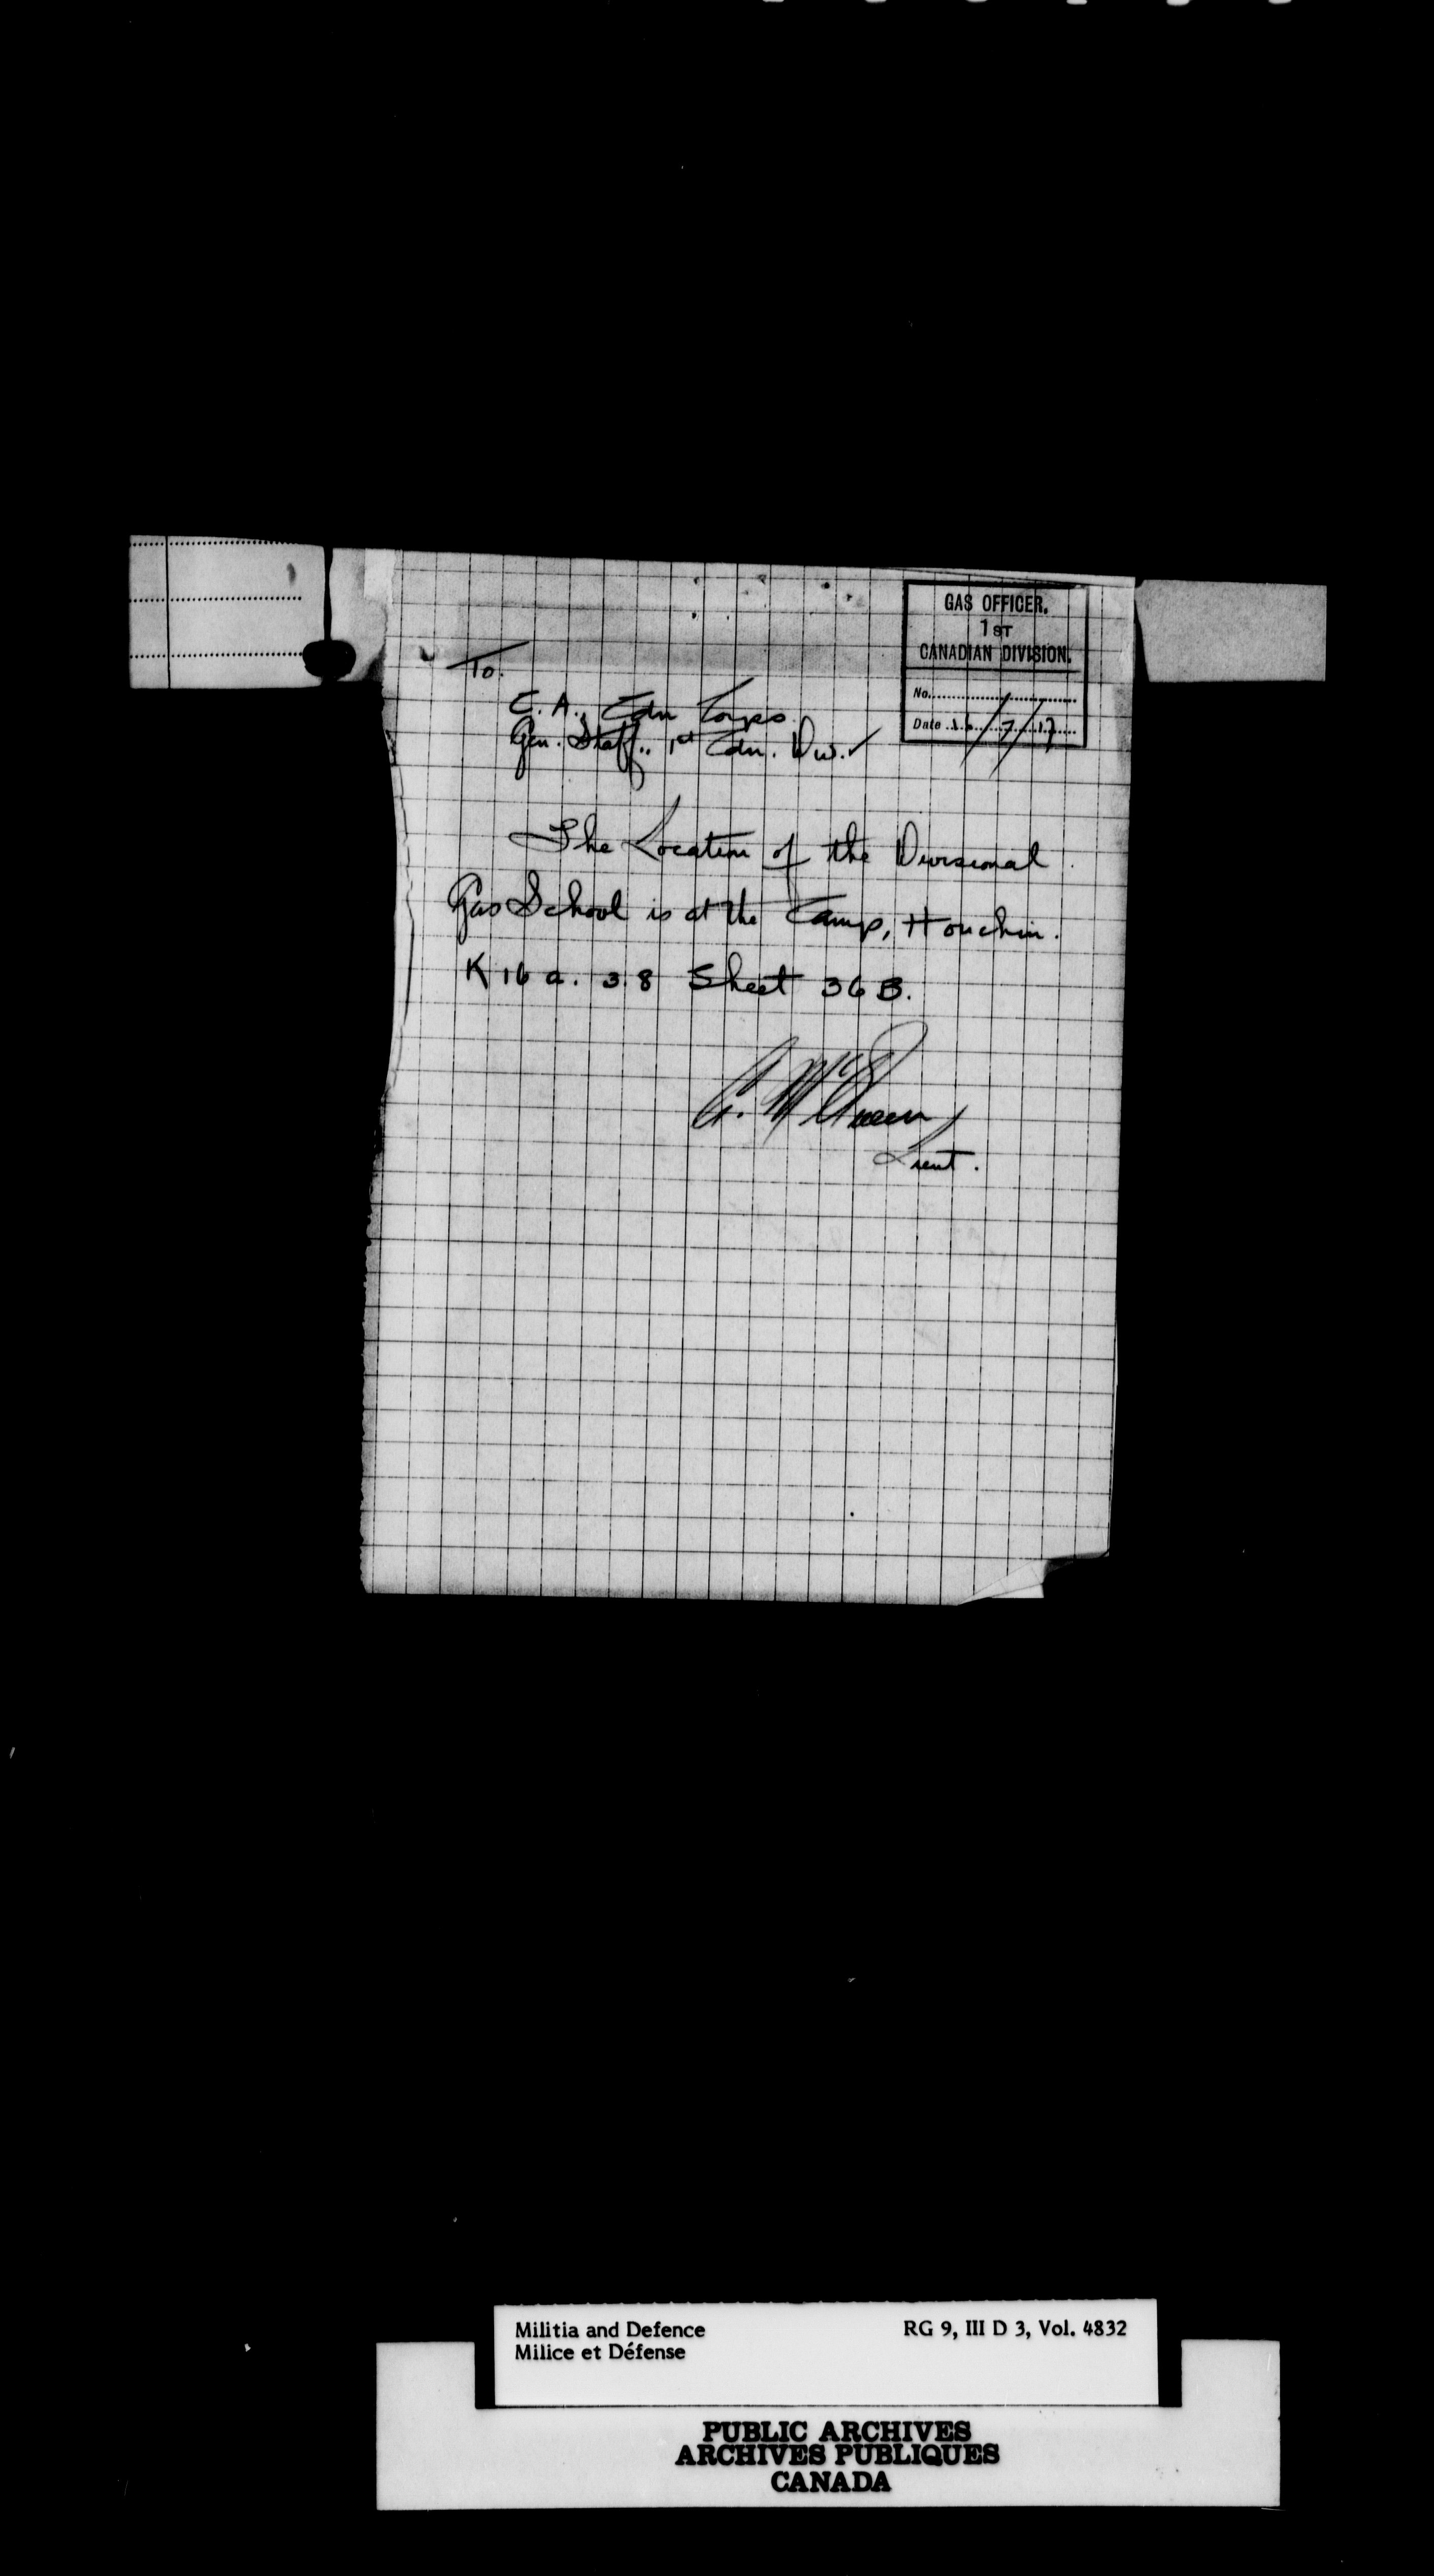 GAS OFFICER.
1ST
CANADIAN DIVISION.
No.
Date 16/7/17
To.
C. A., Cdn Corps.
Gen. Staff., 1st Cdn. Div. ✓
The Location of the Divisional
Gas School is at the Camp, Houchin.
K 16 a. 3.8 Sheet 36 B.
Lieut.
Militia and Defence
Milice et Défense
RG 9, III D 3, Vol. 4832
PUBLIC ARCHIVES
ARCHIVES PUBLIQUES
CANADA